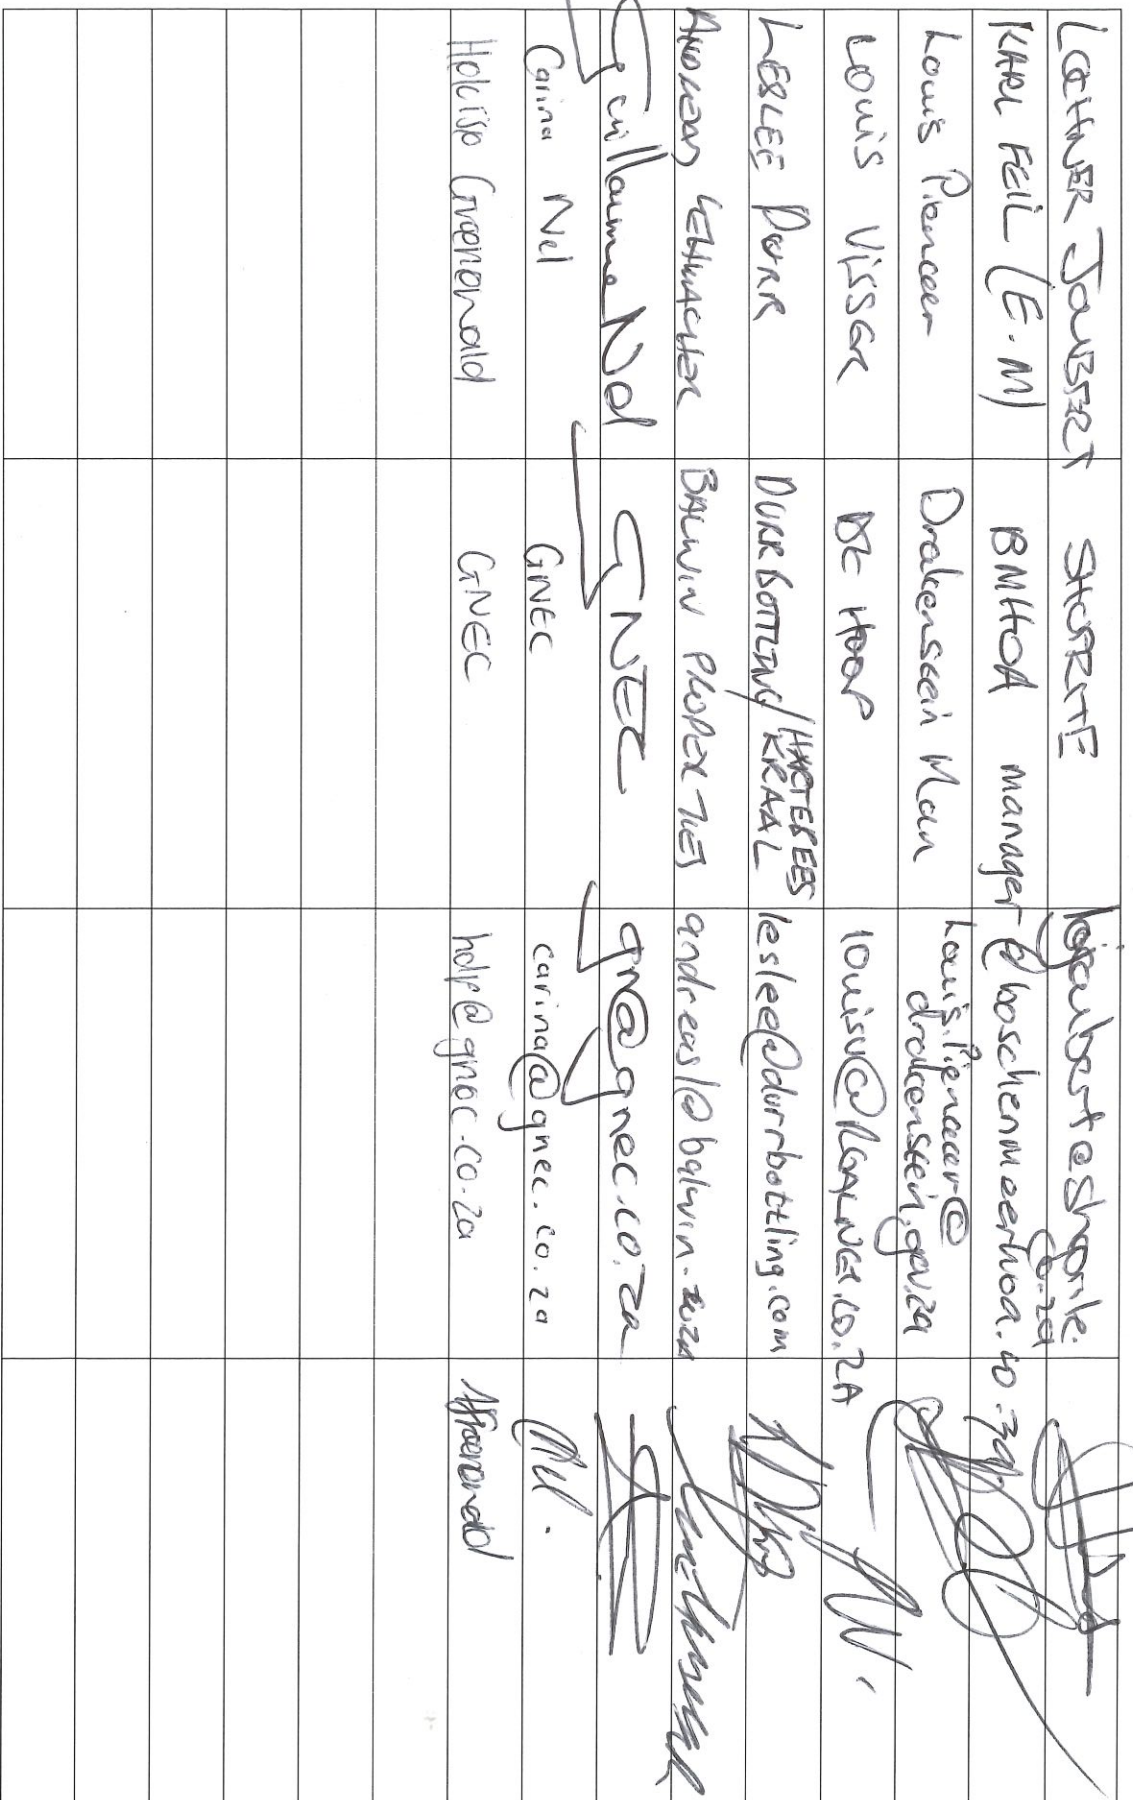 LOCHNER JOUBERT SHOPRITE ljjoubert@shoprite.co.za
KARL FEIL (E.M) BMHOA manager@boschenmeerhoa.co.za
Louis Pienaar Drakenstein Mun Louis.Pienaar@
drakenstein.gov.za
LOUIS VISSER DE HOOP louisv@REALNET.CO.ZA
LESLEE DURR DURR BOTTLING/HARTEBEES
KRAAL leslee@durrbottling.com
ANDREAS BALWIN PROPERTIES andreasl@balwin.co.za
Guillaume Nel GNEC gn@gnec.co.za
Carina Nel GNEC carina@gnec.co.za
Groenewald GNEC help@gnec.co.za